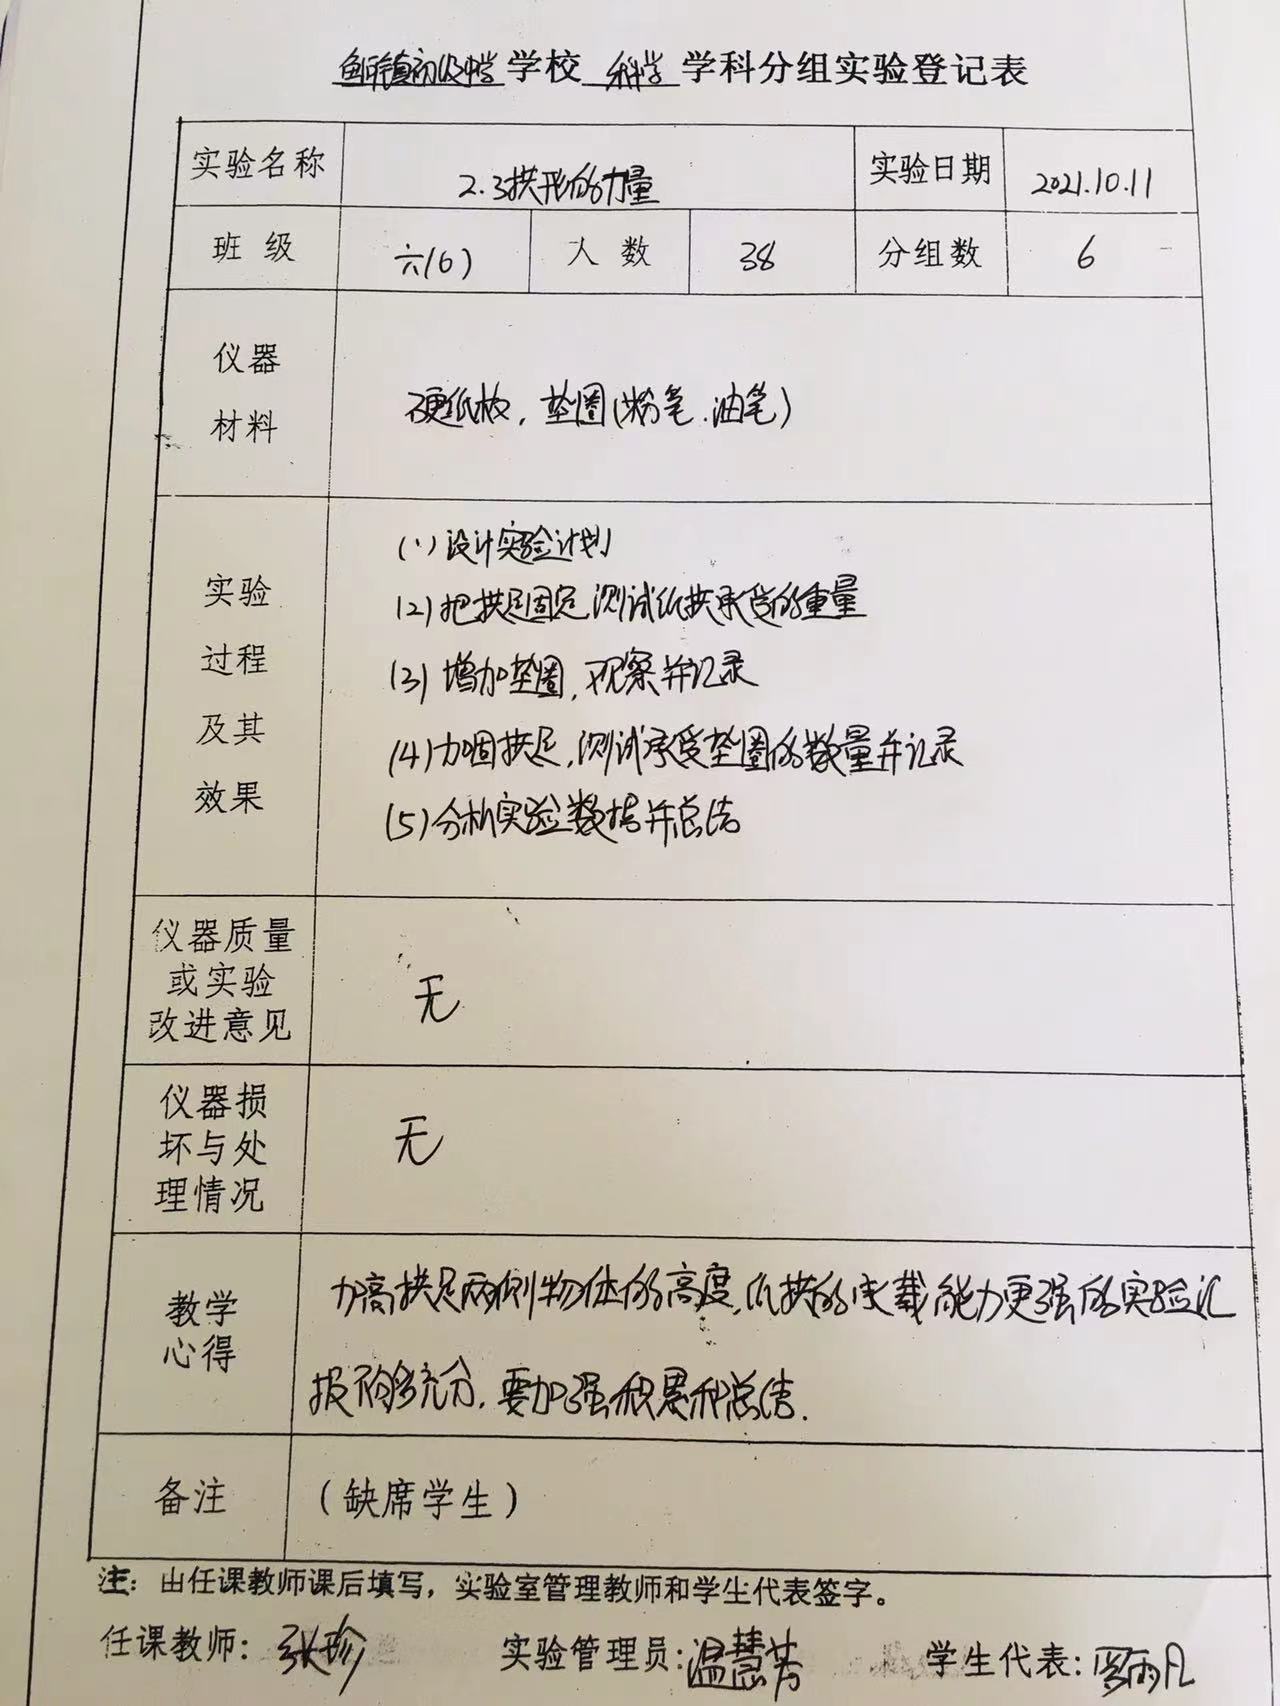 镇初级中学学校 科学 学科分组实验登记表
实验名称 2.3拱形的力量 实验日期 2021.10.11
班级 六(6) 人数 38 分组数 6
仪器
材料
硬纸板，垫圈(粉笔.油笔)
实验
过程
及其
效果
(1)设计实验计划
(2)把拱足固定,测试纸拱承受的重量
(3)增加垫圈,观察并记录
(4)加固拱足,测试承受垫圈的数量并记录
(5)分析实验数据并总结
仪器质量
或实验
改进意见
无
仪器损
坏与处
理情况
无
教学
心得
加高拱足两侧物体的高度,纸拱的承载能力更强的实验汇
报不够充分,要加强积累和总结.
备注 (缺席学生)
注：由任课教师课后填写，实验室管理教师和学生代表签字。
任课教师：张珍 实验管理员：温慧芳 学生代表：罗雨凡